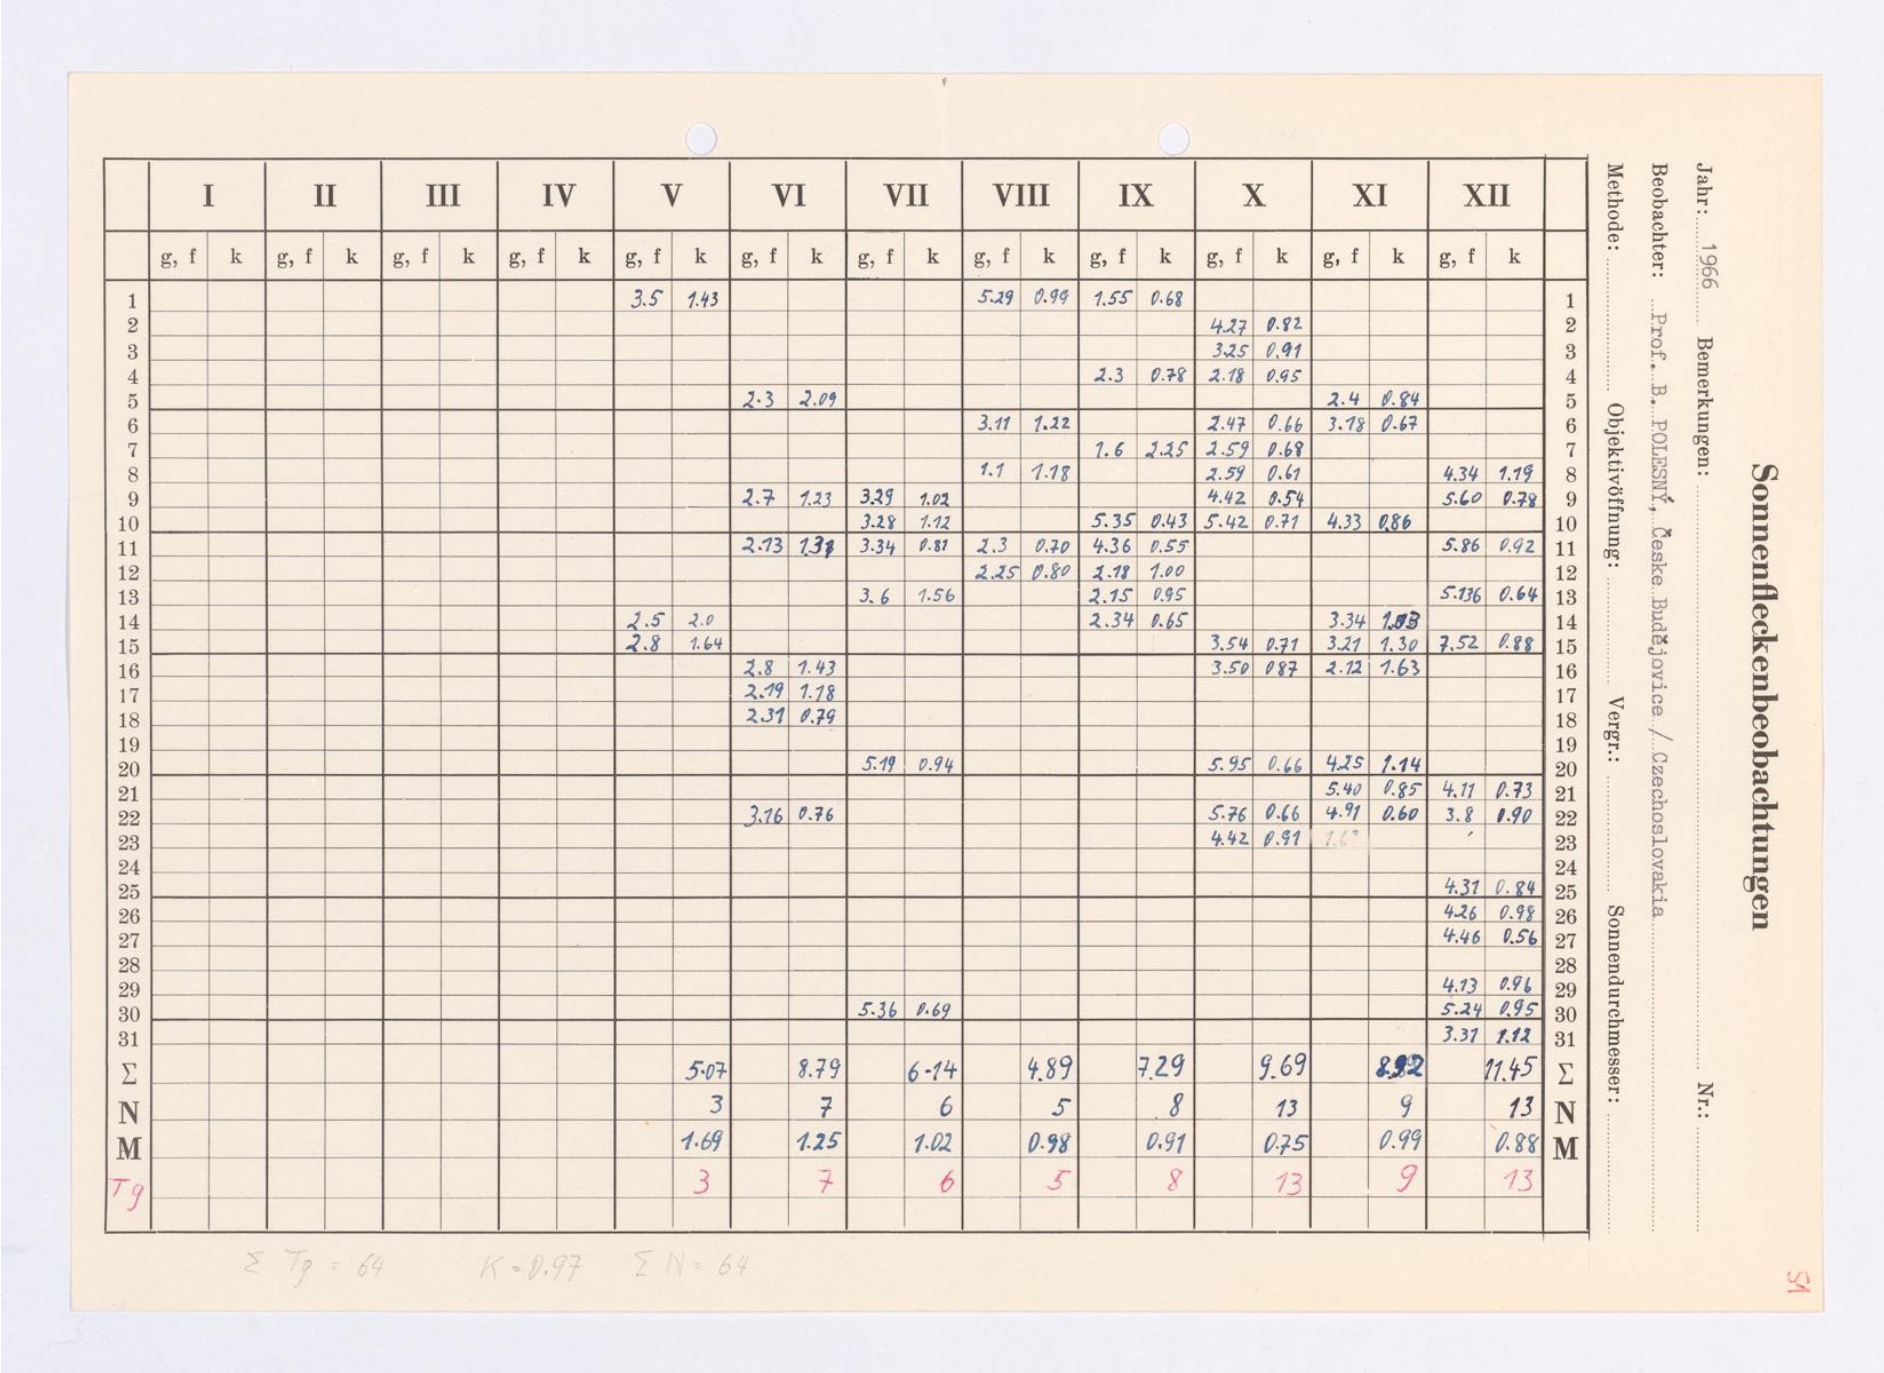 Sonnenfleckenbeobachtungen
Jahr: 1966 Bemerkungen: Nr.:
Beobachter: Prof. B. POLESNÝ, České Budějovice / Czechoslovakia
Methode: Objektivöffnung: Vergr.: Sonnendurchmesser:
I II III IV V VI VII VIII IX X XI XII
g, f k g, f k g, f k g, f k g, f k g, f k g, f k g, f k g, f k g, f k g, f k g, f k
1 3.5 1.43 5.29 0.99 1.55 0.68 1
2 4.27 0.82 2
3 3.25 0.91 3
4 2.3 0.78 2.18 0.95 4
5 2.3 2.09 2.4 0.84 5
6 3.11 1.22 2.47 0.66 3.18 0.67 6
7 1.6 2.25 2.59 0.68 7
8 1.1 1.18 2.59 0.61 4.34 1.19 8
9 2.7 1.23 3.29 1.02 4.42 0.54 5.60 0.78 9
10 3.28 1.12 5.35 0.43 5.42 0.71 4.33 0.86 10
11 2.13 1.31 3.34 0.81 2.3 0.70 4.36 0.55 5.86 0.92 11
12 2.25 0.80 2.18 1.00 12
13 3.6 1.56 2.15 0.95 5.136 0.64 13
14 2.5 2.0 2.34 0.65 3.34 1.03 14
15 2.8 1.64 3.54 0.71 3.21 1.30 7.52 0.88 15
16 2.8 1.43 3.50 0.87 2.12 1.63 16
17 2.19 1.18 17
18 2.31 0.79 18
19 19
20 5.19 0.94 5.95 0.66 4.25 1.14 20
21 5.40 0.85 4.11 0.73 21
22 3.16 0.76 5.76 0.66 4.91 0.60 3.8 0.90 22
23 4.42 0.91 23
24 24
25 4.31 0.84 25
26 4.26 0.98 26
27 4.46 0.56 27
28 28
29 4.13 0.96 29
30 5.36 0.69 5.24 0.95 30
31 3.31 1.12 31
Σ 5.07 8.79 6-14 4.89 7.29 9.69 8.92 11.45 Σ
N 3 7 6 5 8 13 9 13 N
M 1.69 1.25 1.02 0.98 0.91 0.75 0.99 0.88 M
Tg 3 7 6 5 8 13 9 13
Σ Tg = 64 K = 0.97 Σ N = 64
51